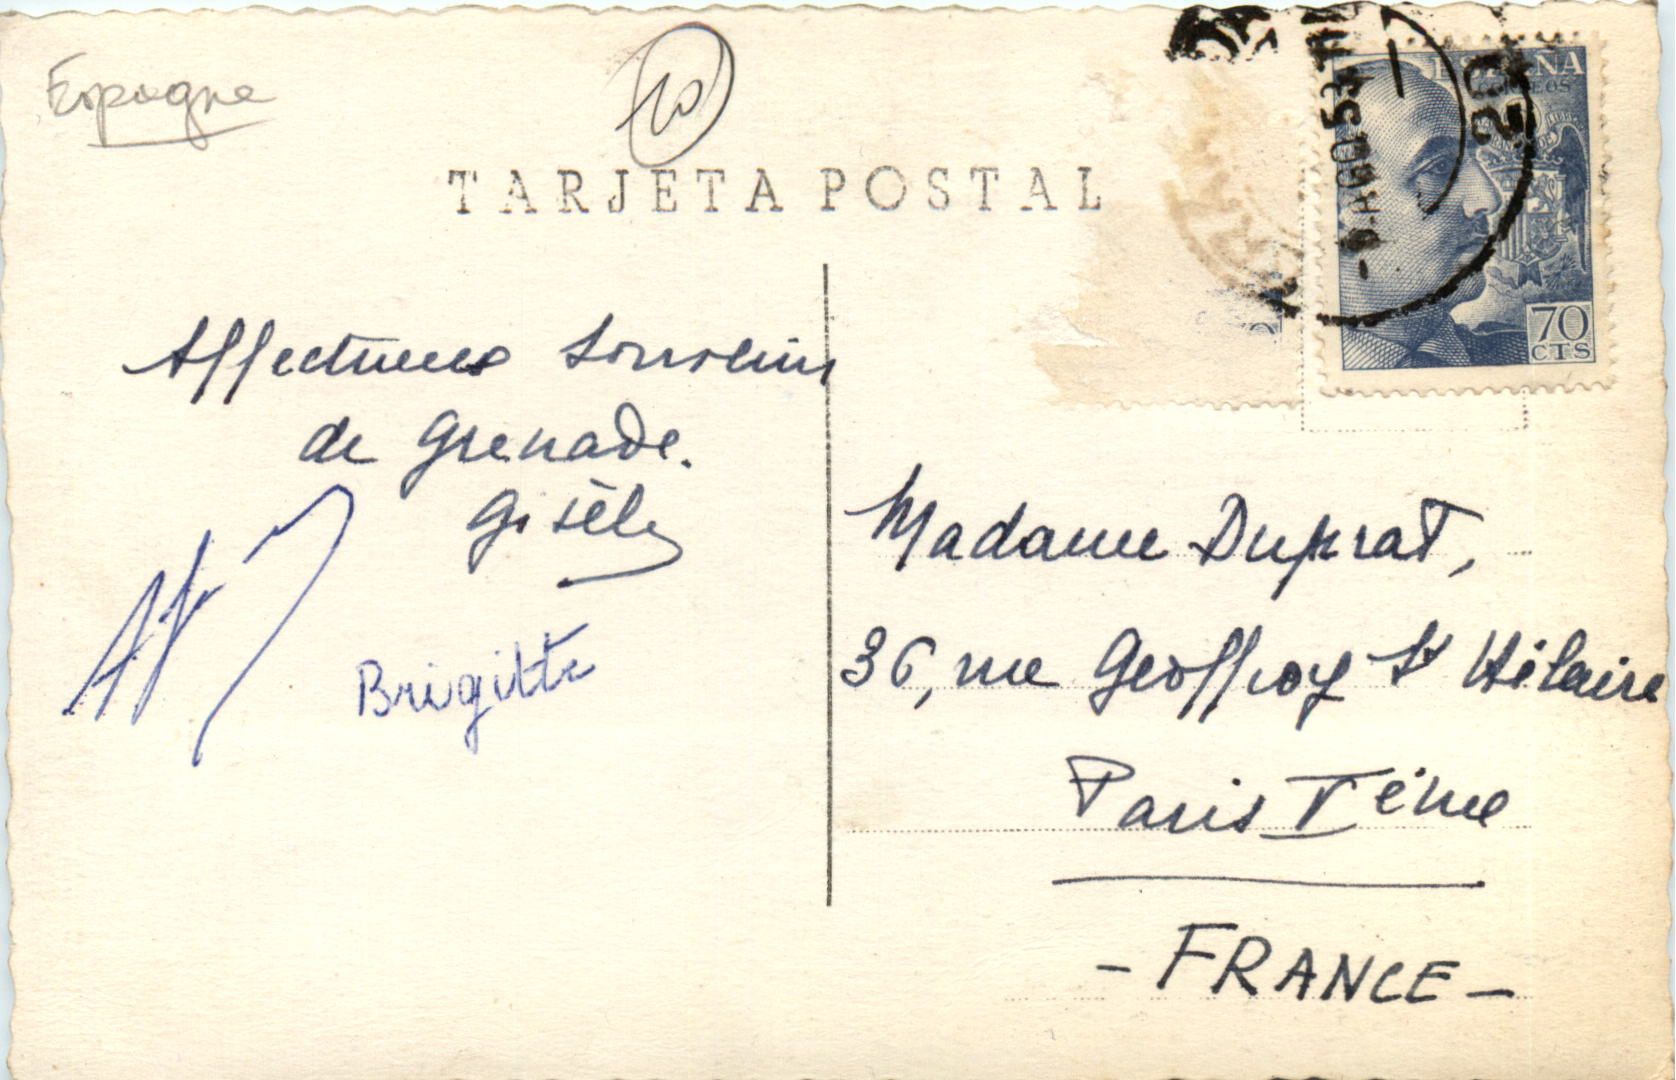 Espagne
10
TARJETA POSTAL
ESPAÑA
CORREOS
70
CTS
AGO 53
20
Affectueux souvenirs
de Grenade.
Gisèle
Brigitte
Madame Duprat,
36, rue Geoffroy St Hilaire
Paris Vème
- FRANCE -